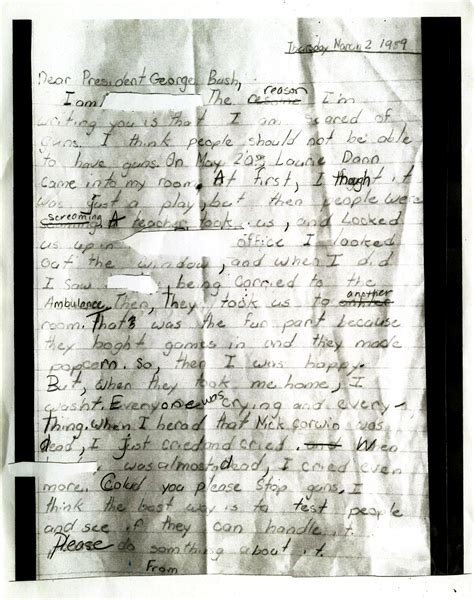 Thursday March 2 1989
Dear President George Bush,
I am The reason I'm
writing you is that I am scared of
guns. I think people should not be able
to have guns. On May 20 Laurie Dann
came into my room. At first, I thought it
was just a play, but then people were
screaming A teacher took us, and Locked
us up in office I looked
out the window, and when I did
I saw being carried to the
Ambulance. Then, They took us to another
room. That's was the fun part because
they boght games in and they made
popcorn. So, then I was happy.
But, when they took me home, I
wasnt. Everyone was crying and every-
Thing. When I herad that Nick corwin was
dead, I just cried and cried. When
was almost dead, I cried even
more. Could you please stop guns. I
think the best way is to test people
and see if they can handle it.
Please do something about it.
From